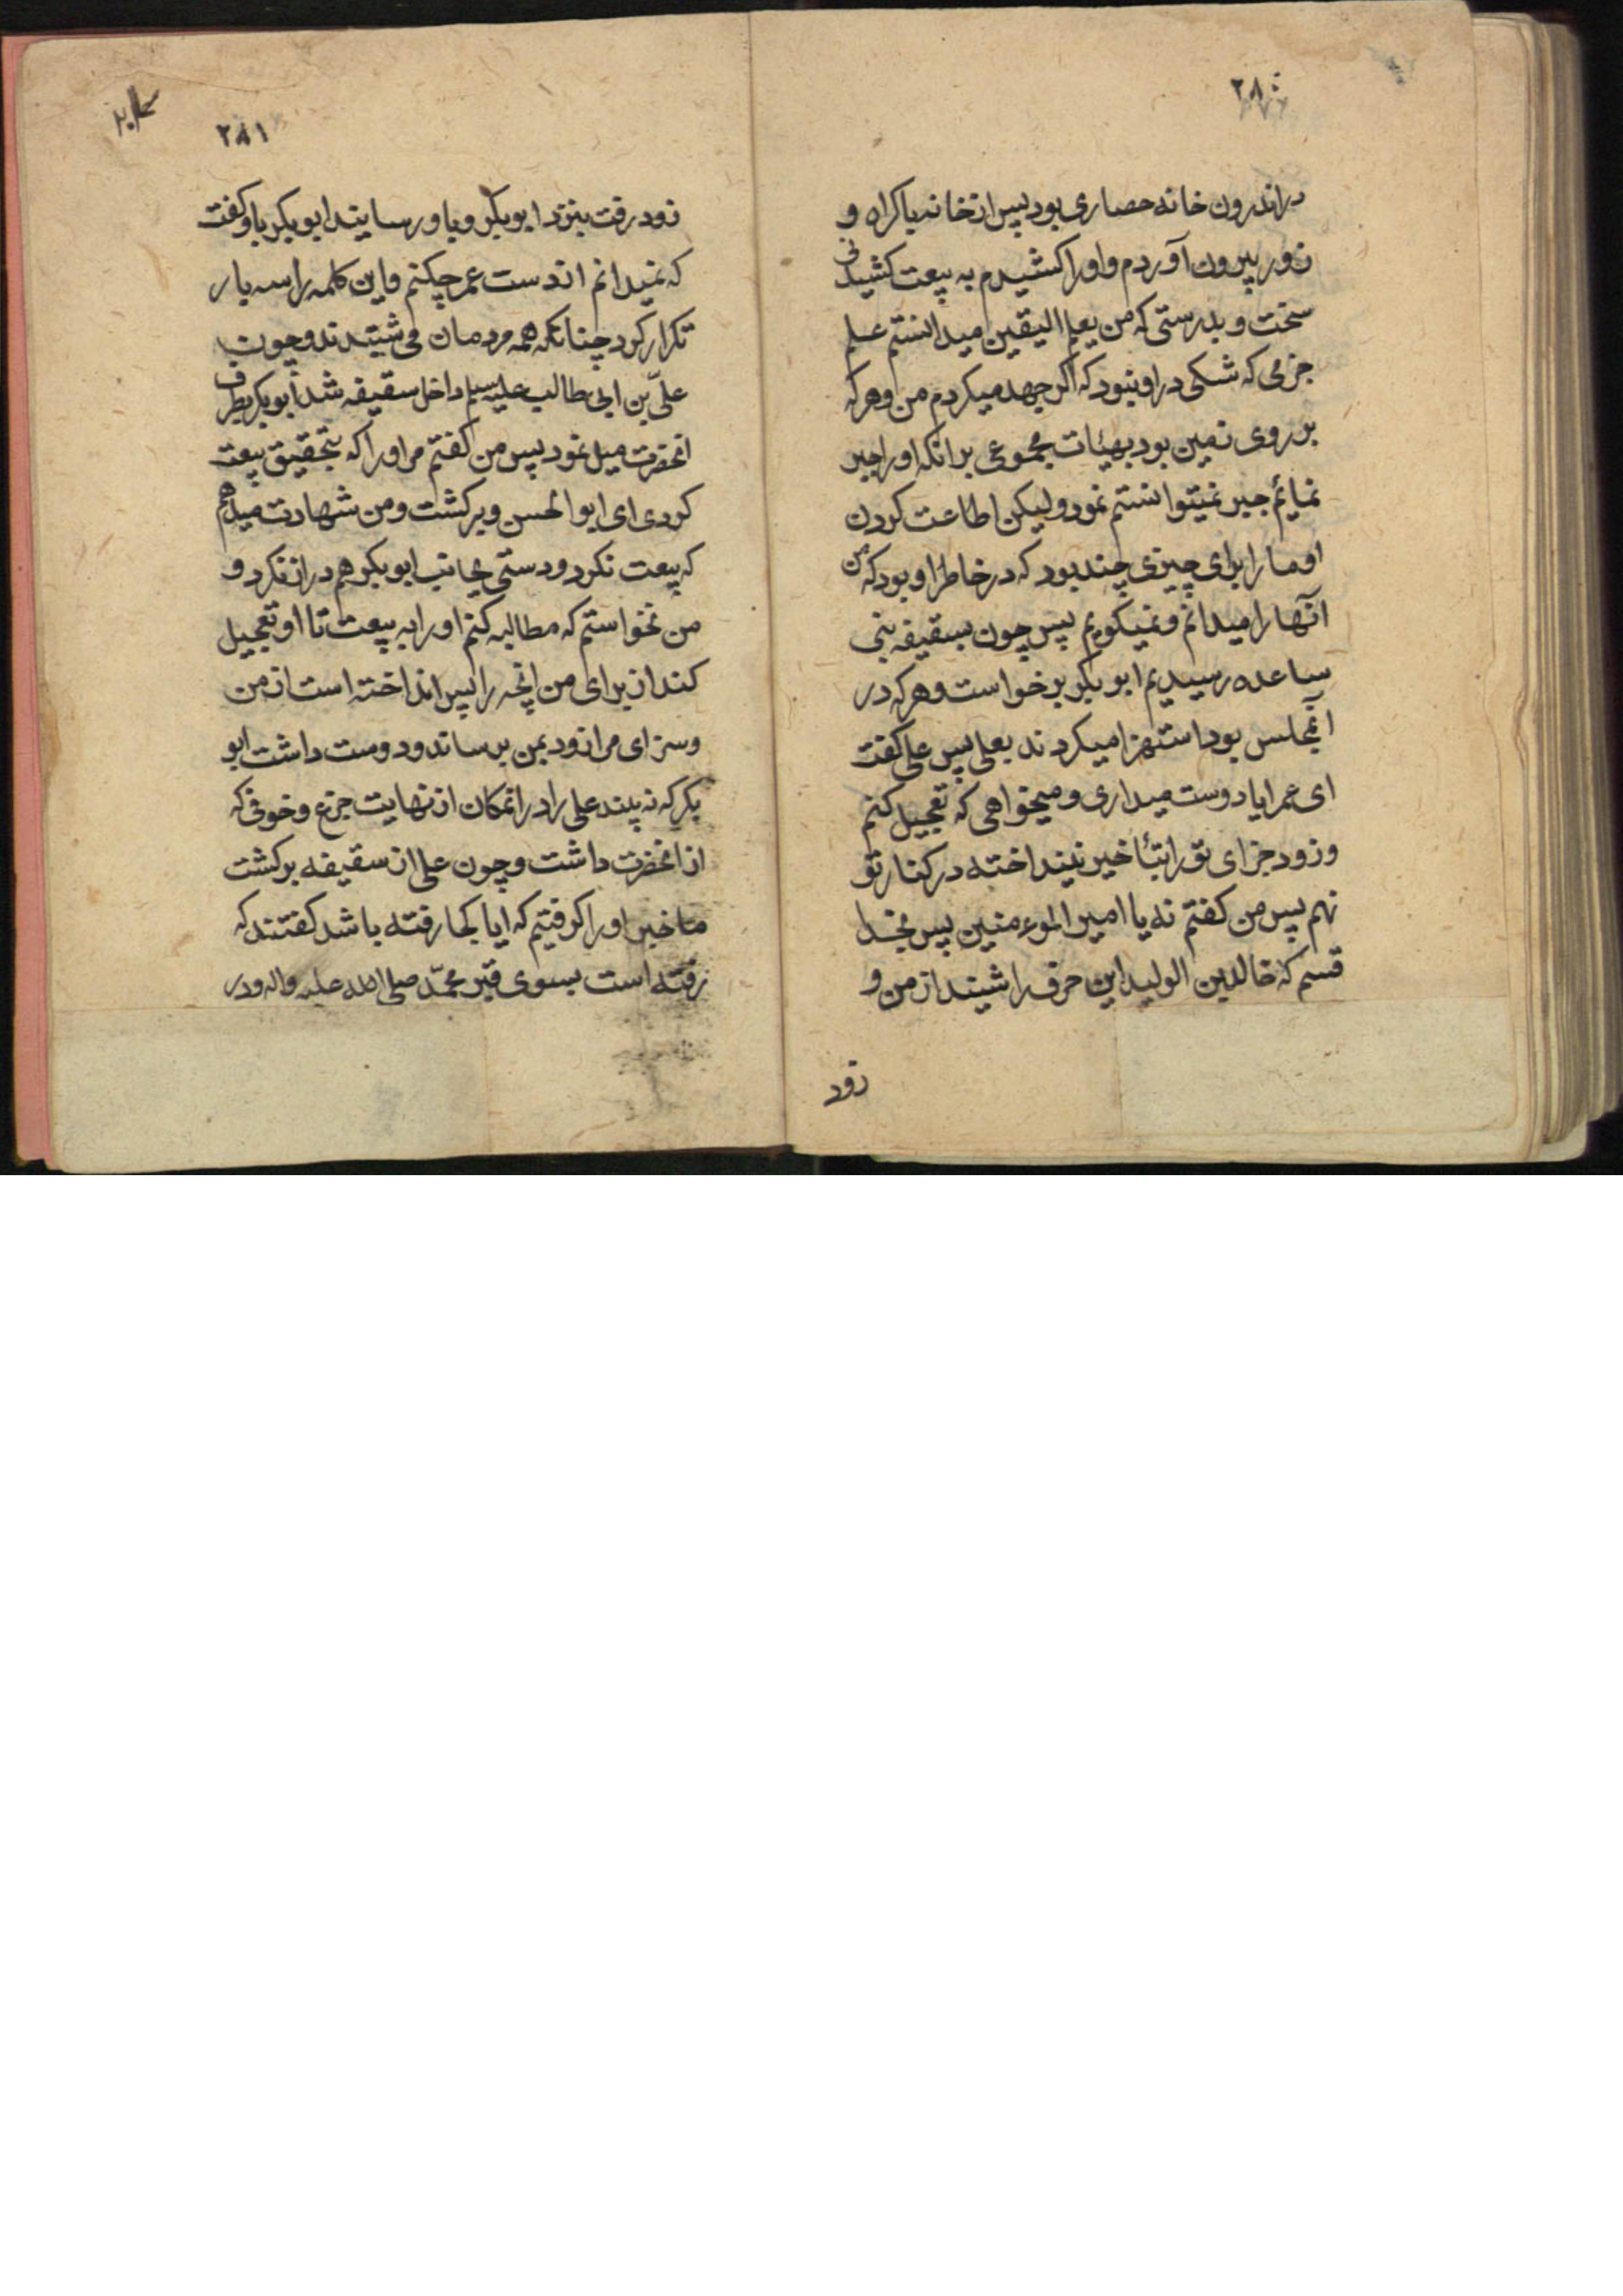 ۲۸۰
در اندرون خانه حصاری بود پس از خانه باکراه و
زور بیرون آوردم و او را کشیدم به بیعت کشیدنی
سخت و بدرستی که من بعلم الیقین میدانستم علم
جزمی که شکی در او نبود که اکر جهد میکردم من و هر که
بر روی زمین بود بهیئات مجموعی بر انکه او را جبر
نمایئم جبر نمیتوانستم نمود و لیکن اطاعت کردن
او ما را برای چیزی چند بود که در خاطر او بود که من
آنها را میدانم و نمیکویم پس چون بسقیفه بنی
ساعده رسیدیم ابو بکر برخواست و هر که در
آنمجلس بود استهزا میکردند بعلی پس علی کفت
ای عمر ایا دوست میداری و میخواهی که تعجیل کنم
و زود جزای تو را بتٲاخیر نینداخته در کنار تو
نهم پس من کفتم نه یا امیر الموءمنین پس بخدا
قسم که خالد بن الولید این حرف را شنید از من و
زود
۲۸۱
زود رفت بنزد ابو بکر و باو رسانید ابو بکر باو کفت
که نمیدانم از دست عمر چکنم و این کلمه را سه بار
تکرار کرد چنانکه همه مردمان می شنیدند و چون
علیّ بن ابی طالب علیه سلم داخل سقیفه شد ابو بکر بطرف
انحضرت میل نمود پس من کفتم مر او را که بتحقیق بیعت
کردی ای ابو الحسن و برکشت و من شهادت میدهم
که بیعت نکرد و دستی بجانب ابو بکر هم دراز نکرد و
من نخواستم که مطالبه کنم او را به بیعت تا او تعجیل
کند از برای من انچه را پس انداخته است از من
و سزای مرا زود بمن برساند و دوست داشت ابو
بکر که نه بیند علی را در انمکان از نهایت جزع و خوفی که
از انحضرت داشت و چون علی از سقیفه برکشت
ما خبر او را کرفتیم که ایا بکجا رفته باشد کفتند که
رفته است بسوی قبر محمّد صلی الله علیه و اله و در